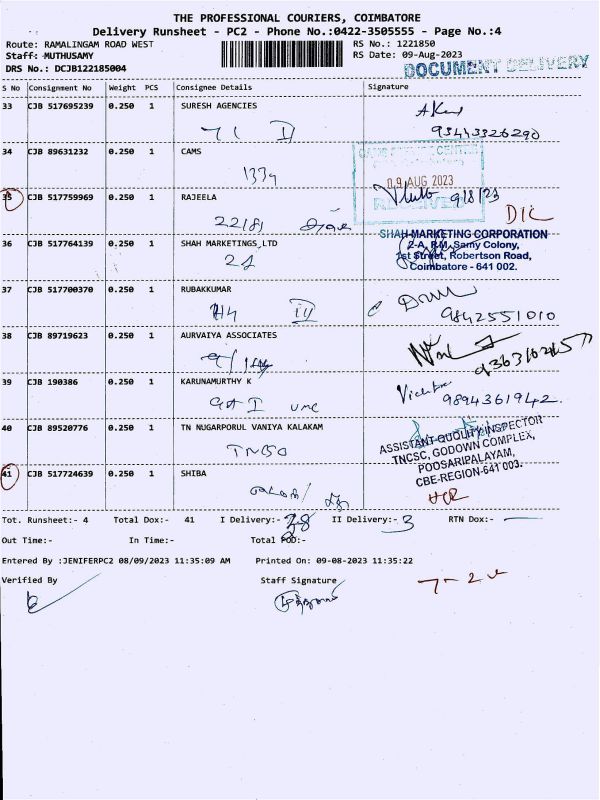 THE PROFESSIONAL COURIERS, COIMBATORE
Delivery Runsheet - PC2 - Phone No.:0422-3505555 - Page No.:4
Route: RAMALINGAM ROAD WEST
RS No.: 1221850
Staff: MUTHUSAMY
RS Date: 09-Aug-2023
DRS No.: DCJB122185004
DOCUMENT DELIVERY
S No Consignment No Weight PCS Consignee Details Signature
33 CJB 517695239 0.250 1 SURESH AGENCIES
34 CJB 89631232 0.250 1 CAMS
1339
09 AUG 2023
35 CJB 517759969 0.250 1 RAJEELA
9/8/23
22/81
D/C
36 CJB 517764139 0.250 1 SHAH MARKETINGS,LTD
SHAH MARKETING CORPORATION
2-A, P.M. Samy Colony,
1st Street, Robertson Road,
Coimbatore - 641 002.
37 CJB 517700370 0.250 1 RUBAKKUMAR
H4 III
9842551010
38 CJB 89719623 0.250 1 AURVAIYA ASSOCIATES
39 CJB 190386 0.250 1 KARUNAMURTHY K
9894361942
40 CJB 89520776 0.250 1 TN NUGARPORUL VANIYA KALAKAM
ASSISTANT QUALITY INSPECTOR
TNCSC, GODOWN COMPLEX,
POOSARIPALAYAM,
CBE-REGION-641 003.
41 CJB 517724639 0.250 1 SHIBA
Tot. Runsheet:- 4 Total Dox:- 41 I Delivery:- 38 II Delivery:- 3 RTN Dox:-
Out Time:- In Time:- Total POD:-
Entered By :JENIFERPC2 08/09/2023 11:35:09 AM Printed On: 09-08-2023 11:35:22
Verified By Staff Signature